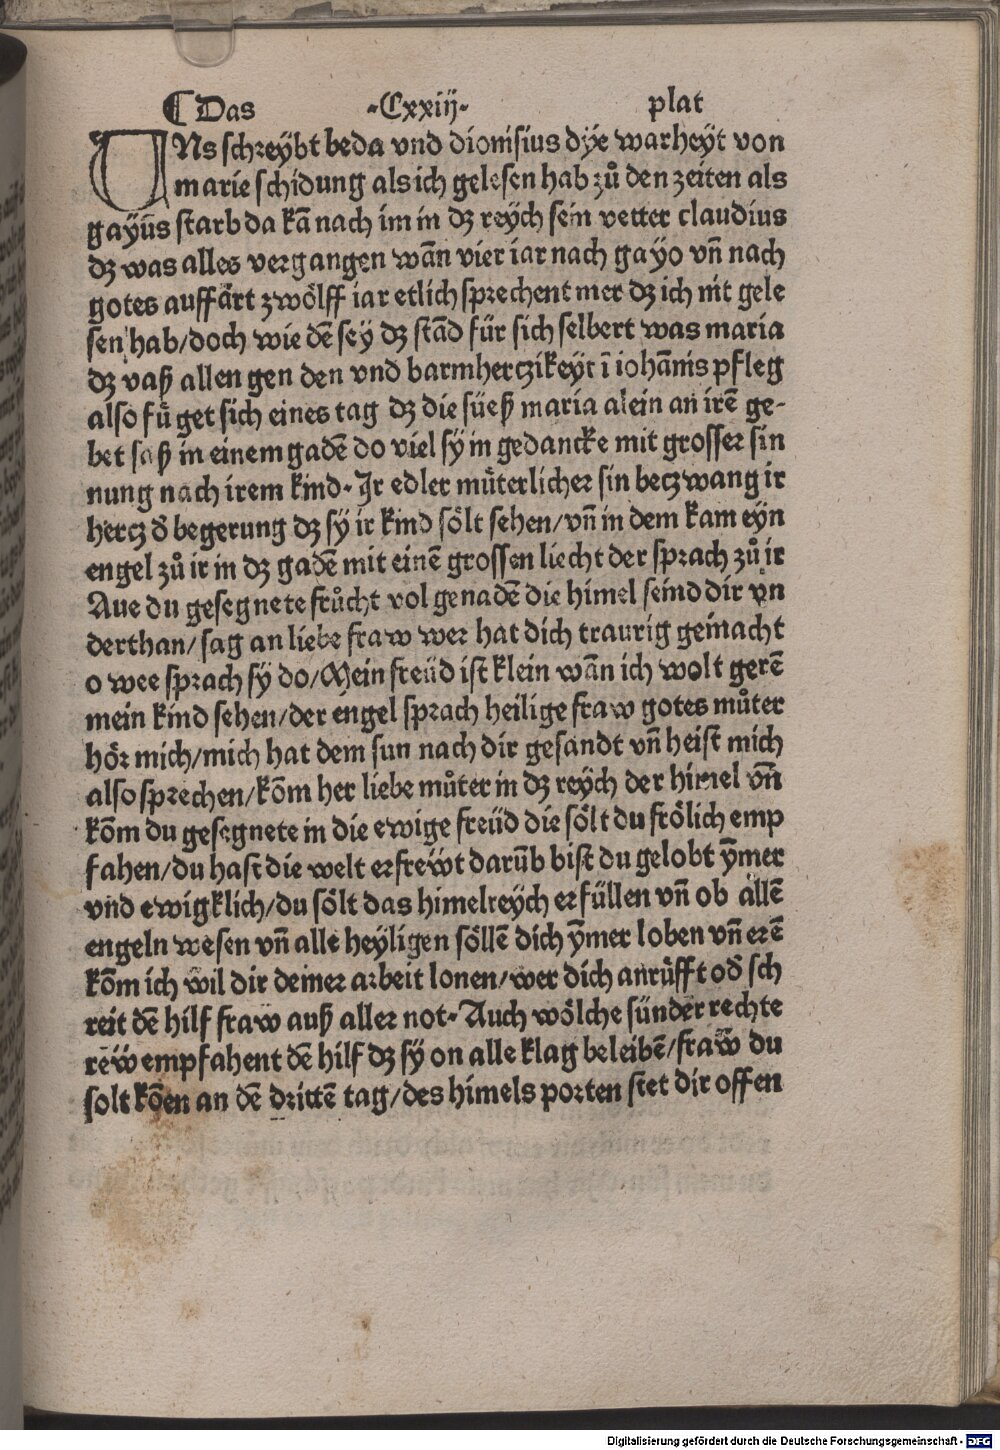 ¶ Das ·Cxxiij· plat
UNs schreybt beda vnd dionisius dÿe warheÿt von
marie schidung als ich gelesen hab zů den zeiten als
gayūs starb da kā nach im in dz reÿch sein vetter claudius
dz was alles vergangen wān vier iar nach gaÿo vn̄ nach
gotes auffårt zwölff iar etlich sprechent mer dz ich nit gele
sen hab/doch wie dē seÿ dz stād für sich selbert was maria
dz vaß allen gen den vnd barmhertzikeyt ī iohānis pfleg
also fü get sich eines tag dz die süeß maria alein an irē ge-
bet saß in einem gadē do viel sÿ in gedancke mit grosser sin
nung nach irem kind· Ir edler müterlicher sin betzwang ir
hertz d̄ begerung dz sÿ ir kind sölt sehen/vn̄ in dem kam eÿn
engel zů ir in dz gadē mit einē grossen liecht der sprach zů ir
Aue du gesegnete frůcht vol genadē die himel seind dir vn
derthan/sag an liebe fraw wer hat dich traurig gemacht
o wee sprach sÿ do/Mein freüd ist klein wān ich wolt gerē
mein kind sehen/der engel sprach heilige fraw gotes můter
hör mich/mich hat dem sun nach dir gesandt vn̄ heist mich
also sprechen/kōm her liebe můter in dz reÿch der himel vn̄
kōm du gesegnete in die ewige freüd die sölt du frölich emp
fahen/du hast die welt erfreẅt darūb bist du gelobt ȳmer
vnd ewigklich/du sölt das himelreÿch erfüllen vn̄ ob allē
engeln wesen vn̄ alle heÿligen söllē dich ȳmer loben vn̄ erē
kōm ich wil dir deiner arbeit lonen/wer dich anrüfft od̄ sch
reit dē hilf fraw auß aller not· Auch wölche sünder rechte
rëw empfahent dē hilf dz sÿ on alle klag beleibē/fraẅ du
solt kōen an dē drittē tag/des himels porten stet dir offen
Digitalisierung gefördert durch die Deutsche Forschungsgemeinschaft - DFG